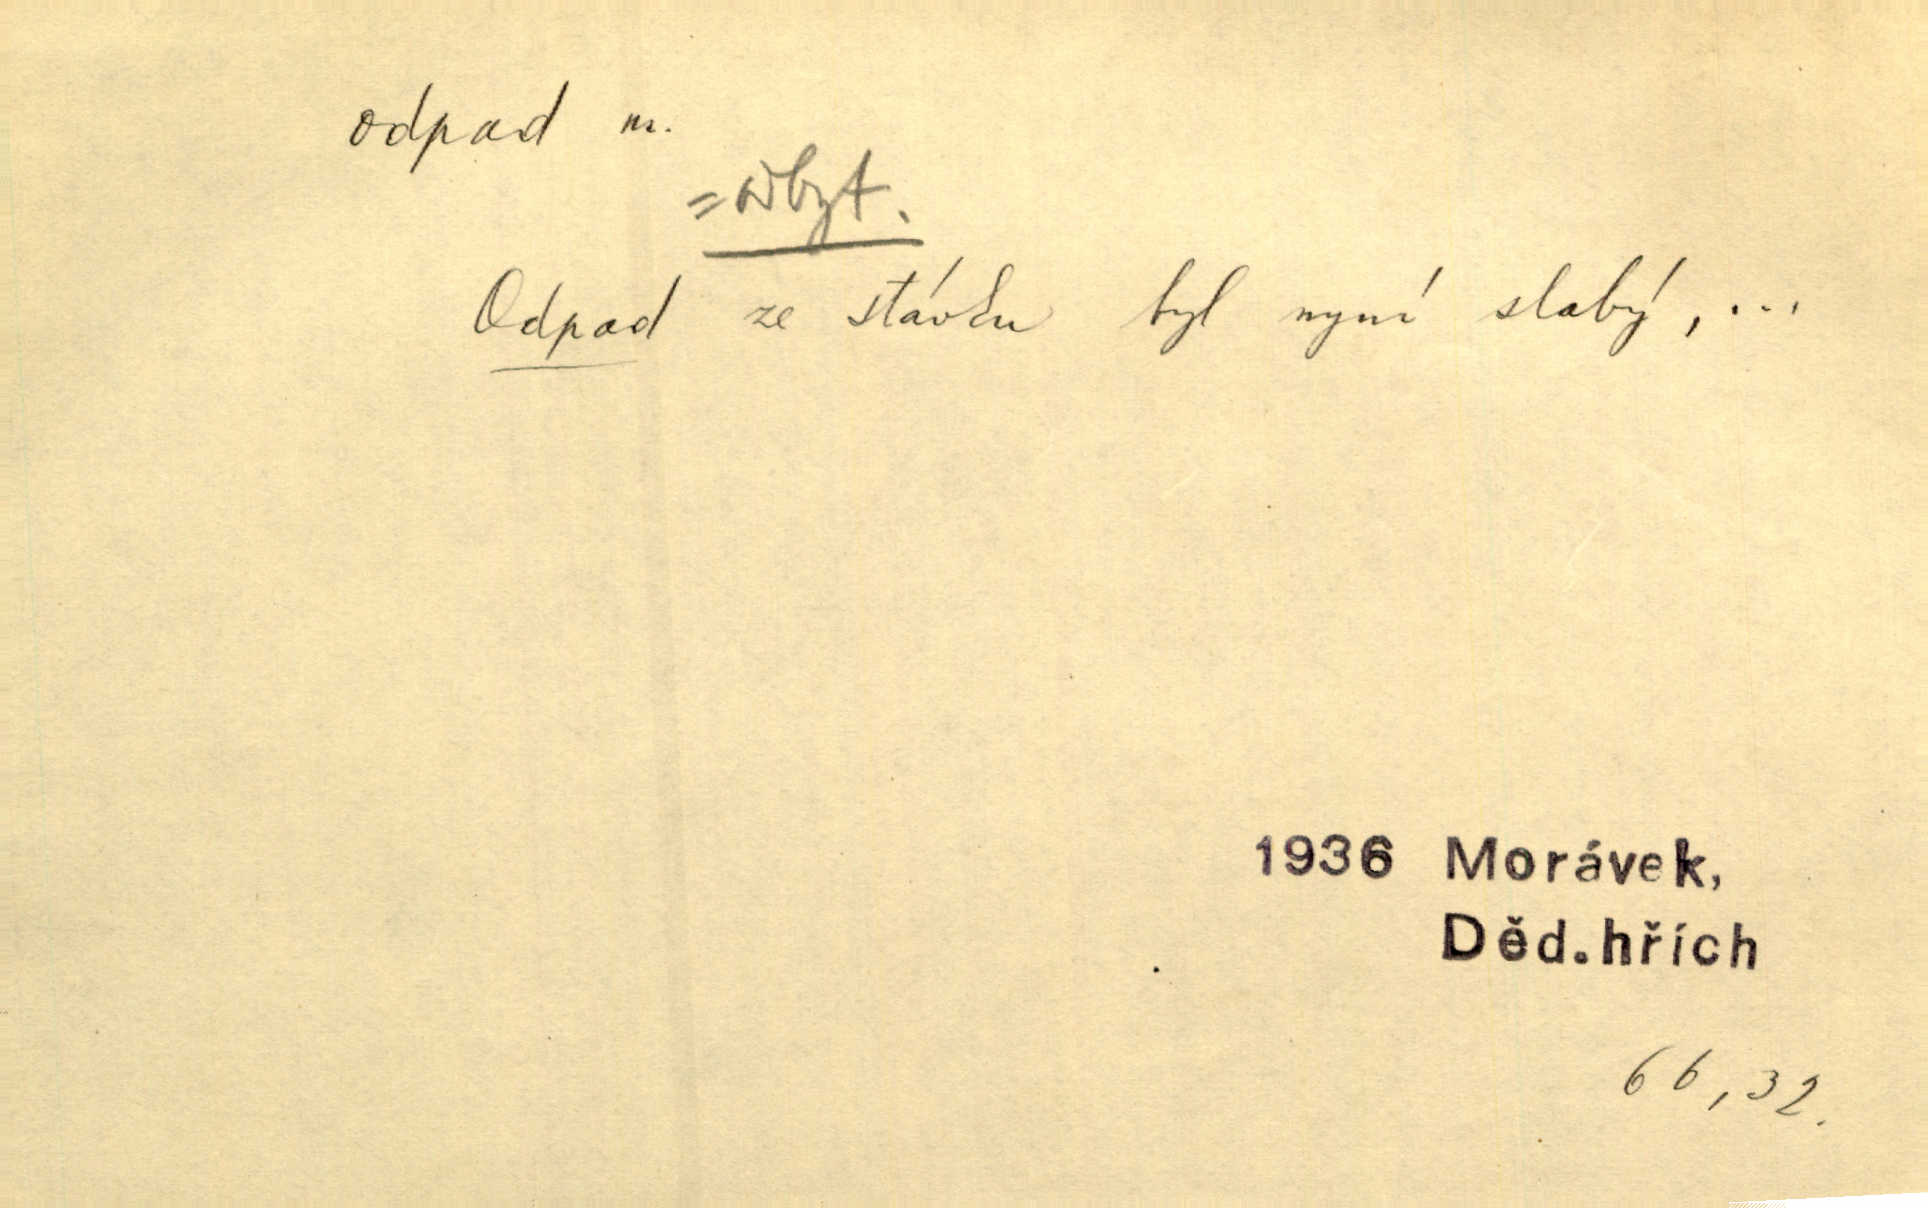 odpad m.
= odbyt.
Odpad ze stávku byl nyní slabý, ...
1936 Morávek,
Děd.hřích
66,32.